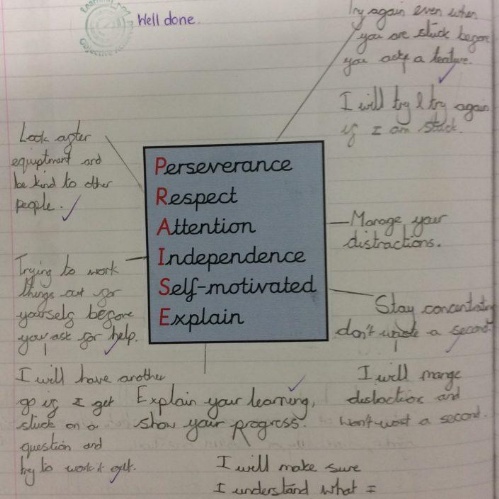 Well done.
Try again even when
you are stuck before
you ask a teature.
I will try & try again
if I am stuck.
Look after
equiptment and
be kind to other
people.
Perseverance
Respect
Attention
Independence
Self-motivated
Explain
Manage your
distractions.
Trying to work
things out for
yourself before
you ask for help.
Stay concentrating
don't waste a second
I will have another
go if I get
stuck on a
question and
try to work it out.
Explain your learning,
show your progress.
I will mange
distaction and
won't wast a second.
I will make sure
I understand what I